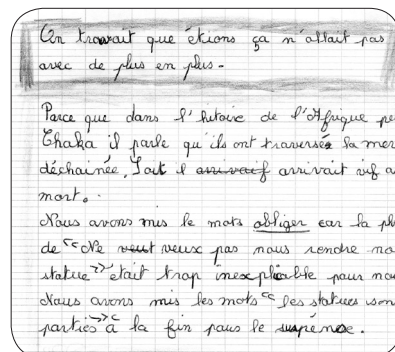 On trouvait que étions ça n'allait pas
avec de plus en plus.
Parce que dans l'hitoire de l'Afrique pe
Chaka il parle qu'ils ont traversés la mer
déchainée, Soit il arrivait vif a
mort.
Nous avons mis le mots obliger car la ph
de "Ne veux pas nous rendre no
statue" était trop inexpliable pour nou
Nous avons mis les mots "les statues son
parties" à la fin pour le suspénse.